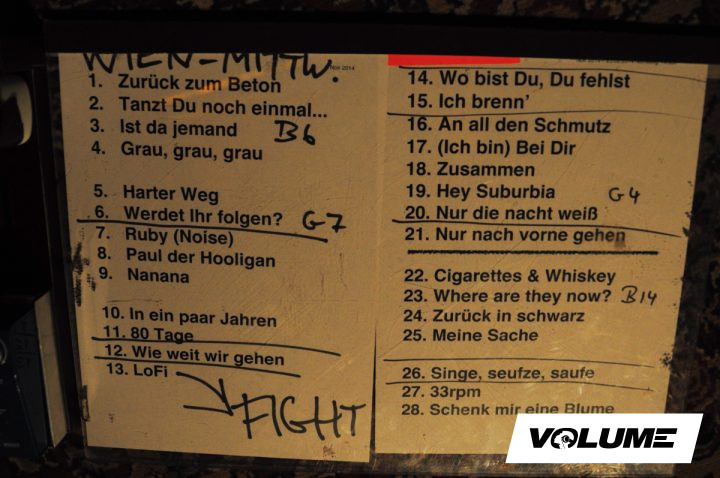 WIEN-MITTW.
Nov 2014
1. Zurück zum Beton
2. Tanzt Du noch einmal...
3. Ist da jemand B6
4. Grau, grau, grau
5. Harter Weg
6. Werdet Ihr folgen? G7
7. Ruby (Noise)
8. Paul der Hooligan
9. Nanana
10. In ein paar Jahren
11. 80 Tage
12. Wie weit wir gehen
13. LoFi
FIGHT
14. Wo bist Du, Du fehlst
15. Ich brenn’
16. An all den Schmutz
17. (Ich bin) Bei Dir
18. Zusammen
19. Hey Suburbia G4
20. Nur die nacht weiß
21. Nur nach vorne gehen
22. Cigarettes & Whiskey
23. Where are they now? B14
24. Zurück in schwarz
25. Meine Sache
26. Singe, seufze, saufe
27. 33rpm
28. Schenk mir eine Blume
VOLUME